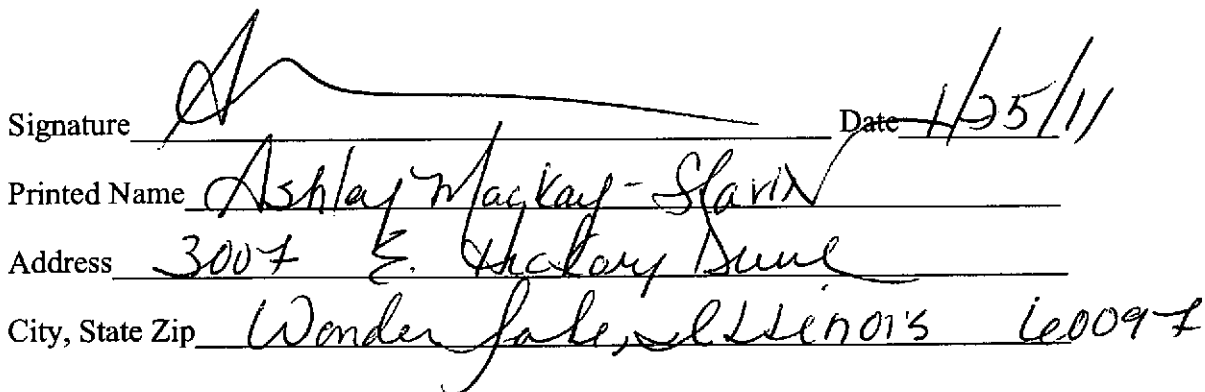 Signature Date 1/25/11
Printed Name Ashley Mackay-Slavin
Address 3007 E. Hickory Drive
City, State Zip Wonder Lake, Illinois 60097